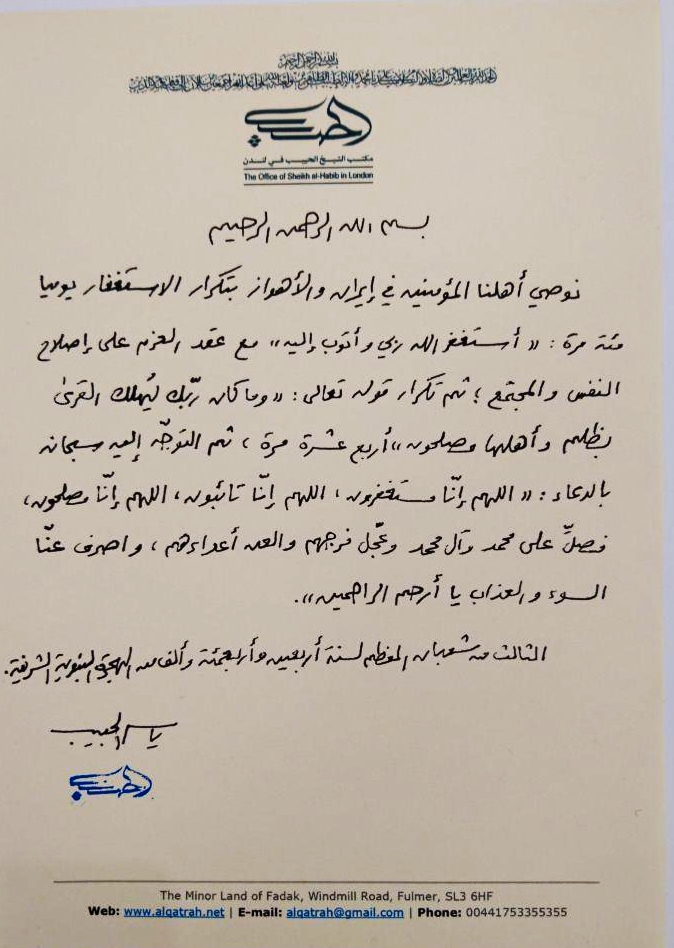 بسم الله الرحمن الرحيم
الحبيب
مكتب الشيخ الحبيب في لندن
The Office of Sheikh al-Habib in London
بسم الله الرحمن الرحيم
نوصي أهلنا المؤمنين في إيران والأهواز بتكرار الاستغفار يوميا
مئة مرة: «أستغفر الله ربي وأتوب إليه» مع عقد العزم على إصلاح
النفس والمجتمع؛ ثم تكرار قوله تعالى: «وما كان ربّك ليُهلك القرىٰ
بظلم وأهلها مصلحون» أربع عشرة مرة، ثم التوجّه إليه سبحانه
بالدعاء: «اللهم إنّا مستغفرون، اللهم إنّا تائبون، اللهم إنّا مصلحون،
فصلِّ على محمد وآل محمد وعجّل فرجهم والعن أعداءهم، واصرف عنّا
السوء والعذاب يا أرحم الراحمين».
الثالث من شعبان المعظم لسنة أربعين وأربعمئة وألف من الهجرة النبوية الشريفة.
ياسر الحبيب
الحبيب
The Minor Land of Fadak, Windmill Road, Fulmer, SL3 6HF
Web: www.alqatrah.net | E-mail: alqatrah@gmail.com | Phone: 00441753355355